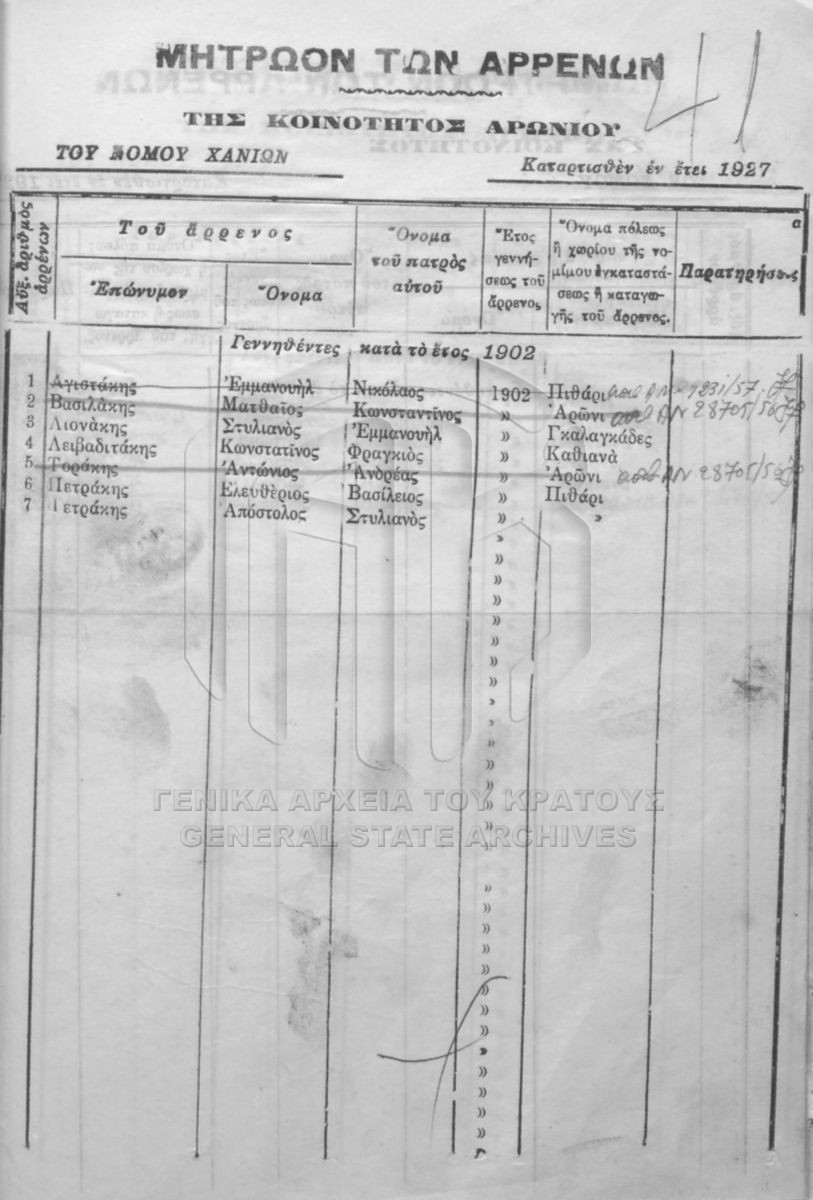 ΜΗΤΡΩΟΝ ΤΩΝ ΑΡΡΕΝΩΝ
41
ΤΗΣ ΚΟΙΝΟΤΗΤΟΣ ΑΡΩΝΙΟΥ
ΤΟΥ ΝΟΜΟΥ ΧΑΝΙΩΝ
Καταρτισθὲν ἐν ἔτει 1927
Αὔξ. ἀριθμὸς ἀρρένων
Τοῦ ἄρρενος
Ἐπώνυμον
Ὄνομα
Ὄνομα
τοῦ πατρὸς
αὐτοῦ
Ἔτος
γεννή-
σεως τοῦ
ἄρρενος
Ὄνομα πόλεως
ἢ χωρίου τῆς νο-
μίμου ἐγκαταστά-
σεως ἢ καταγω-
γῆς τοῦ ἄρρενος.
α
Παρατηρήσεις
Γεννηθέντες κατὰ τὸ ἔτος 1902
1 Αγιστάκης Ἐμμανουὴλ Νικόλαος 1902 Πιθάρι
2 Βασιλάκης Ματθαῖος Κωνσταντῖνος » Ἀρῶνι 28705/56
3 Λιονάκης Στυλιανὸς Ἐμμανουὴλ » Γκαλαγκάδες
4 Λειβαδιτάκης Κωνστατῖνος Φραγκιὸς » Καθιανὰ
5 Τοράκης Ἀντώνιος Ἀνδρέας » Ἀρῶνι 28705/56
6 Πετράκης Ελευθέριος Βασίλειος » Πιθάρι
7 Πετράκης Απόστολος Στυλιανὸς » »
ΓΕΝΙΚΑ ΑΡΧΕΙΑ ΤΟΥ ΚΡΑΤΟΥΣ
GENERAL STATE ARCHIVES